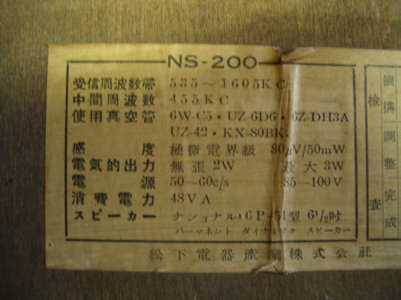 NS-200
受信周波数帯 535～1605KC
中間周波数 455KC
使用真空管 6W-C5・UZ-6D6・6Z-DH3A
UZ-42・KX-80BK.
感度 極微電界級 80μV/50mW
電気的出力 無歪2W 最大3W
電源 50―60c/s 85―100V
消費電力 48VA
スピーカー ナショナル6P-51型 6½吋
パーマネント ダイナミック スピーカー
松下電器産業株式会社
検査
調整完成